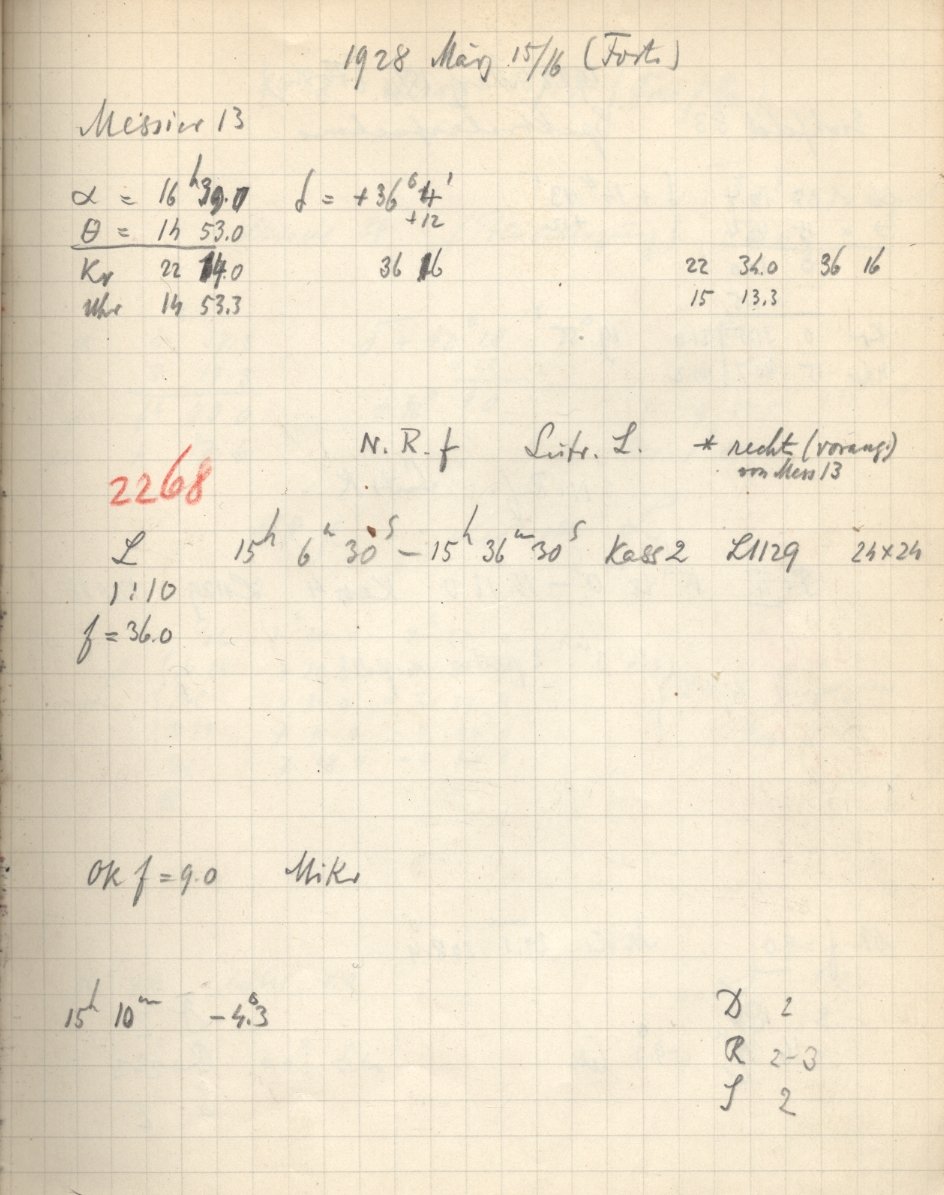 1928 März 15/16 (Forts.)
Messier 13
α = 16ʰ 39.0 δ = +36° 4'
+12
θ = 14 53.0
Kr 22 14.0 36 16 22 34.0 36 16
Uhr 14 53.3 15 13.3
N. R. f L. * rechts (vorang.)
von Mess 13
2268
L 15ʰ 6ᵐ 30ˢ – 15ʰ 36ᵐ 30ˢ Kass 2 L1129 24×24
1:10
f = 36.0
Ok f = 9.0 Mikr
15ʰ 10ᵐ –4.°3 D 2
R 2–3
S 2